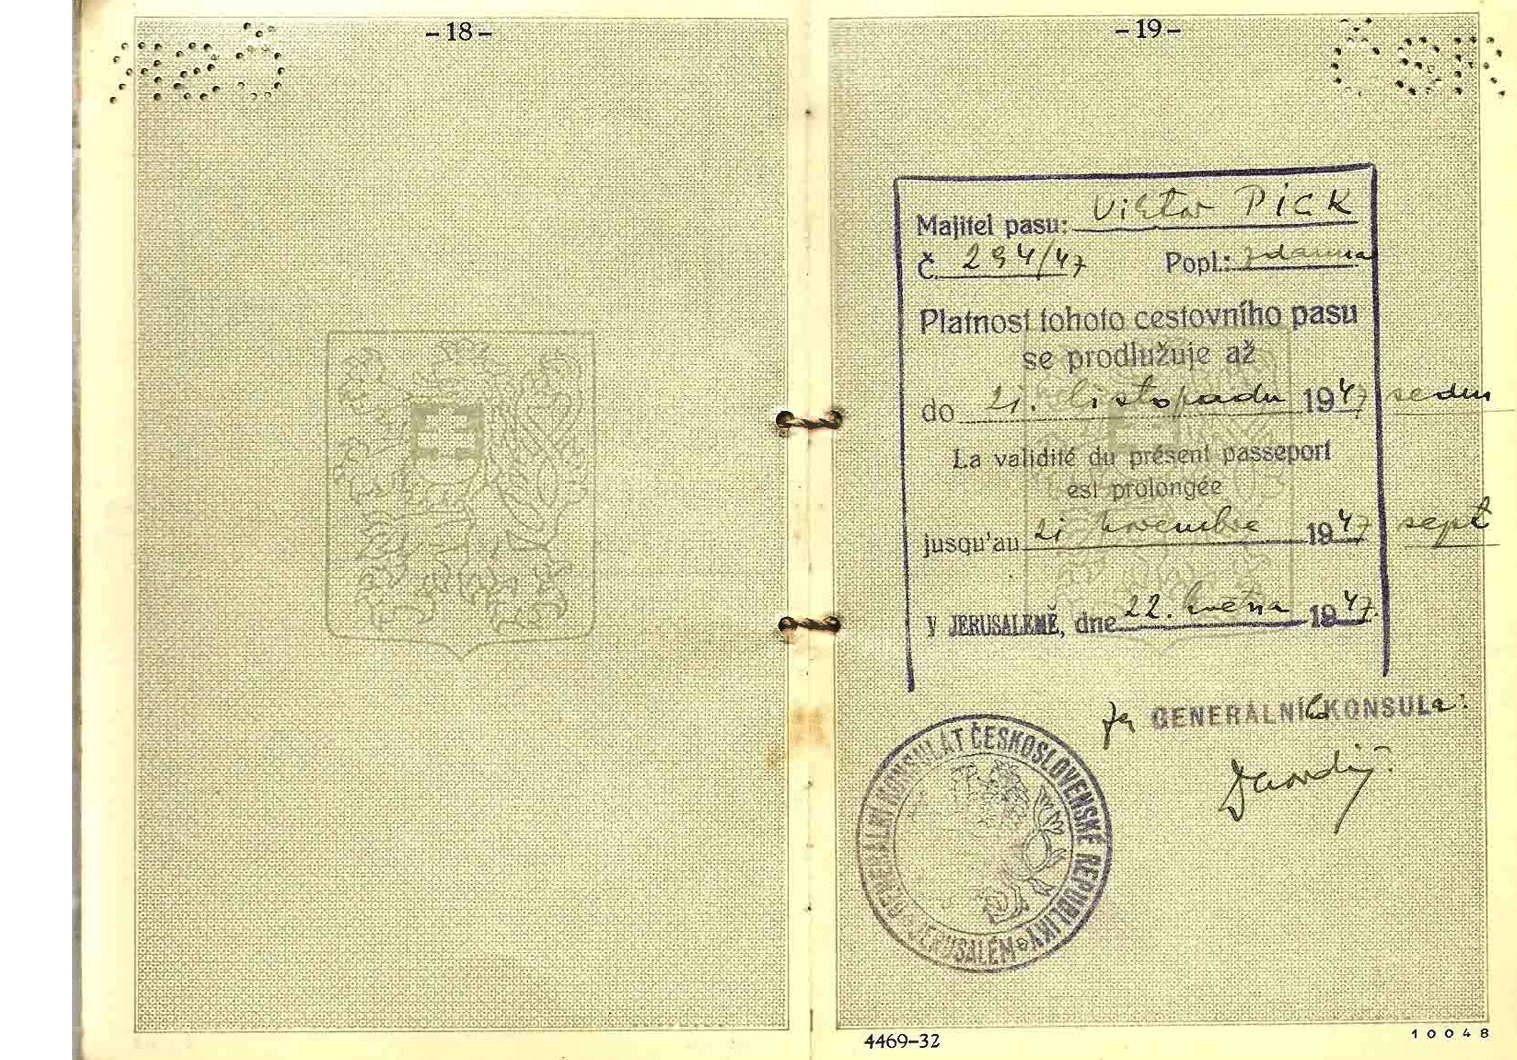 –18–
ČSR
–19–
ČSR
Majitel pasu: Viktor PICK
Č. 294/47 Popl.: zdarma
Platnost tohoto cestovního pasu
se prodlužuje až
do 21. listopadu 1947 sedm
La validité du présent passeport
est prolongée
jusqu'au 21 novembre 1947 sept
V JERUSALEMĚ, dne 22. května 1947.
GENERÁLNÍho KONSULa:
GENERÁLNÍ KONSULÁT ČESKOSLOVENSKÉ REPUBLIKY
JERUSALÉM
4469–32
10048